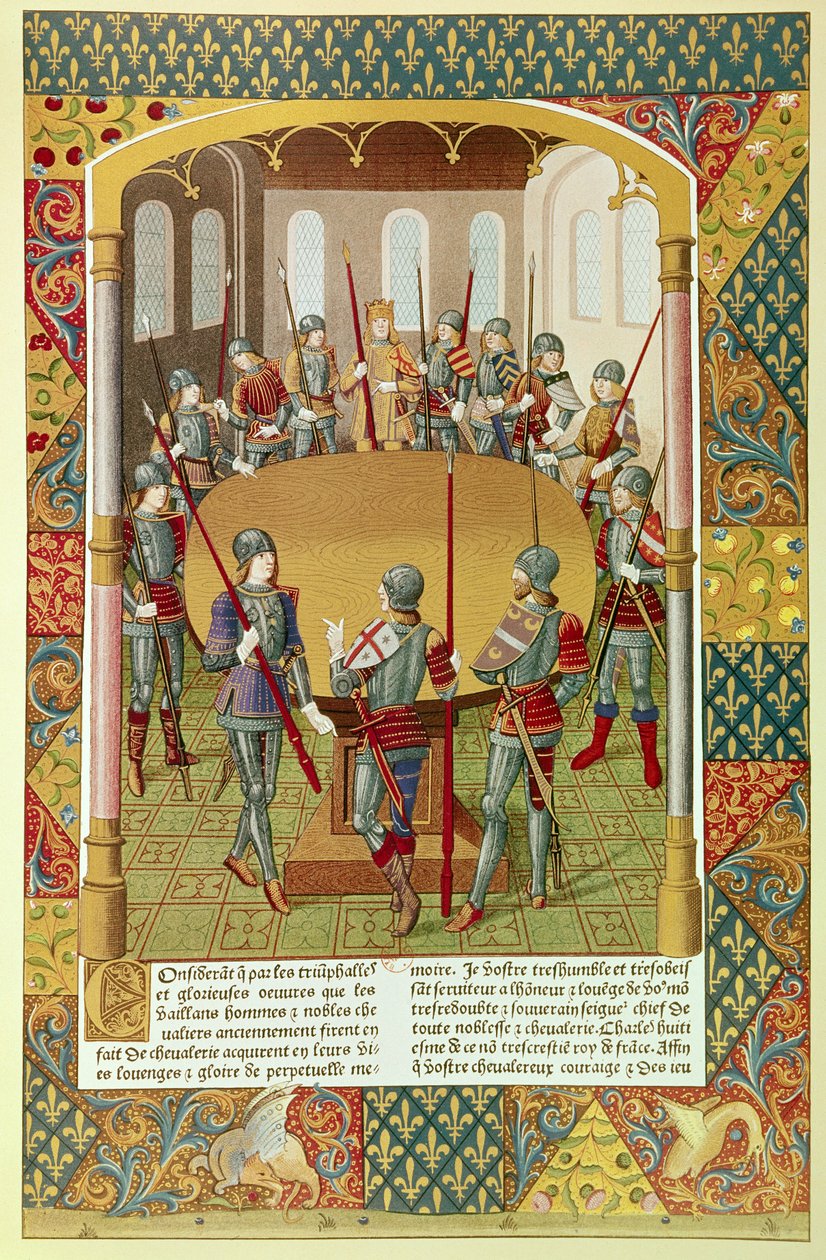 Onsiderãt q̃ par les triũphalles
et glorieuses oeuures que les
Vaillans hommes ⁊ nobles che
ualiers anciennement firent en
fait de cheualerie acquirent en leurs Vi-
es louenges ⁊ gloire de perpetuelle me-
moire. Je Vostre treshumble et tresobeis
sãt seruiteur a lhõneur ⁊ louẽge de Vo⁹ mõ
tresredoubte ⁊ souuerain seigneʳ chief de
toute noblesse ⁊ cheualerie. Charles huiti
esme de ce nõ trescrestiẽ roy de frãce. Affin
q̃ Vostre cheualereux couraige ⁊ des ieu